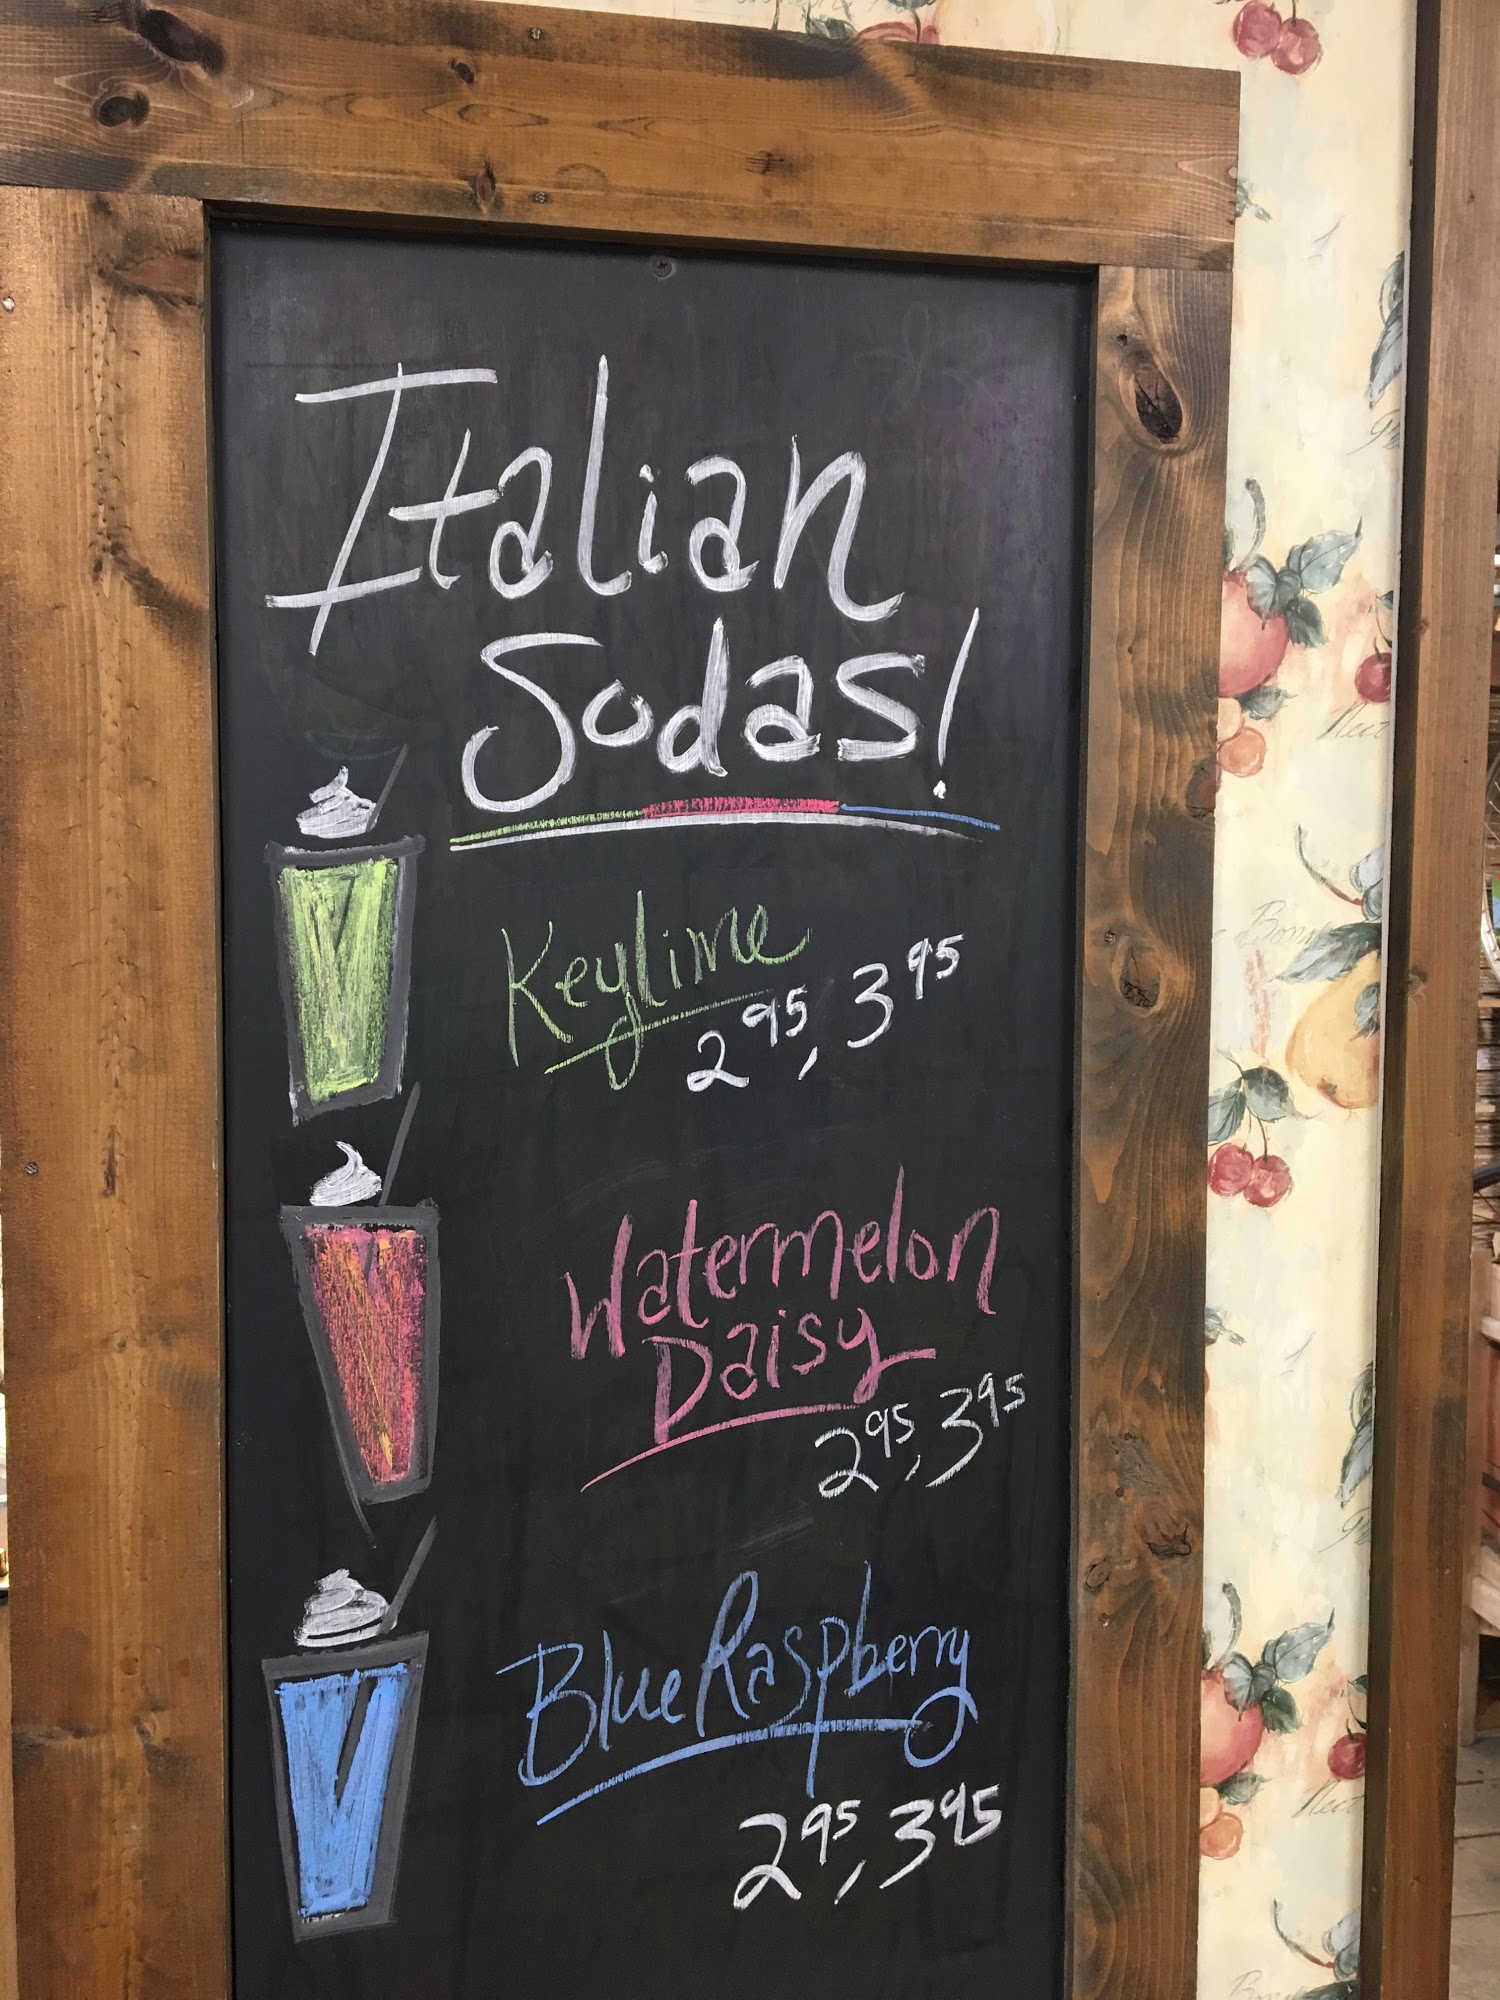 Italian
Sodas!
Keylime
2.95, 3.95
Watermelon
Daisy
2.95, 3.95
Blue Raspberry
2.95, 3.95